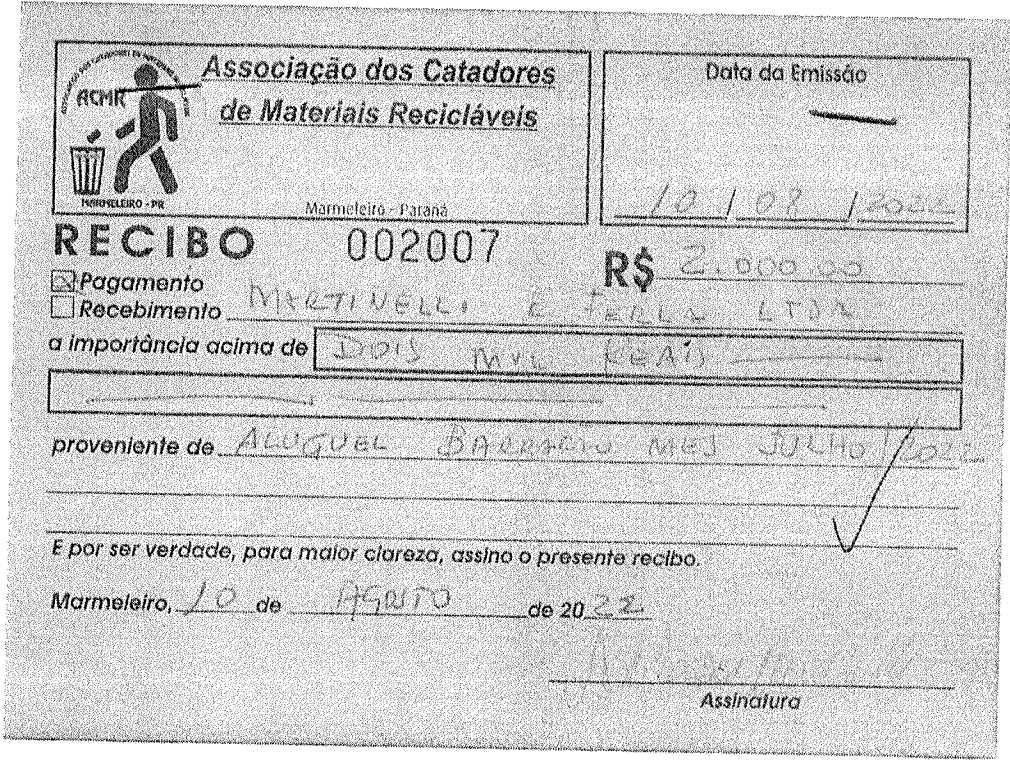 ACMR
MARMELEIRO - PR
Associação dos Catadores
de Materiais Recicláveis
Marmeleiro - Paraná
Data da Emissão
10 / 08 / 2022
RECIBO 002007 R$ 2.000,00
Pagamento
Recebimento MARTINELLI E LTDA
a importância acima de DOIS MYL REAIS
proveniente de ALUGUEL BARRACÃO MES JULHO/2022
E por ser verdade, para maior clareza, assino o presente recibo.
Marmeleiro, 10 de AGOSTO de 20 22
Assinatura